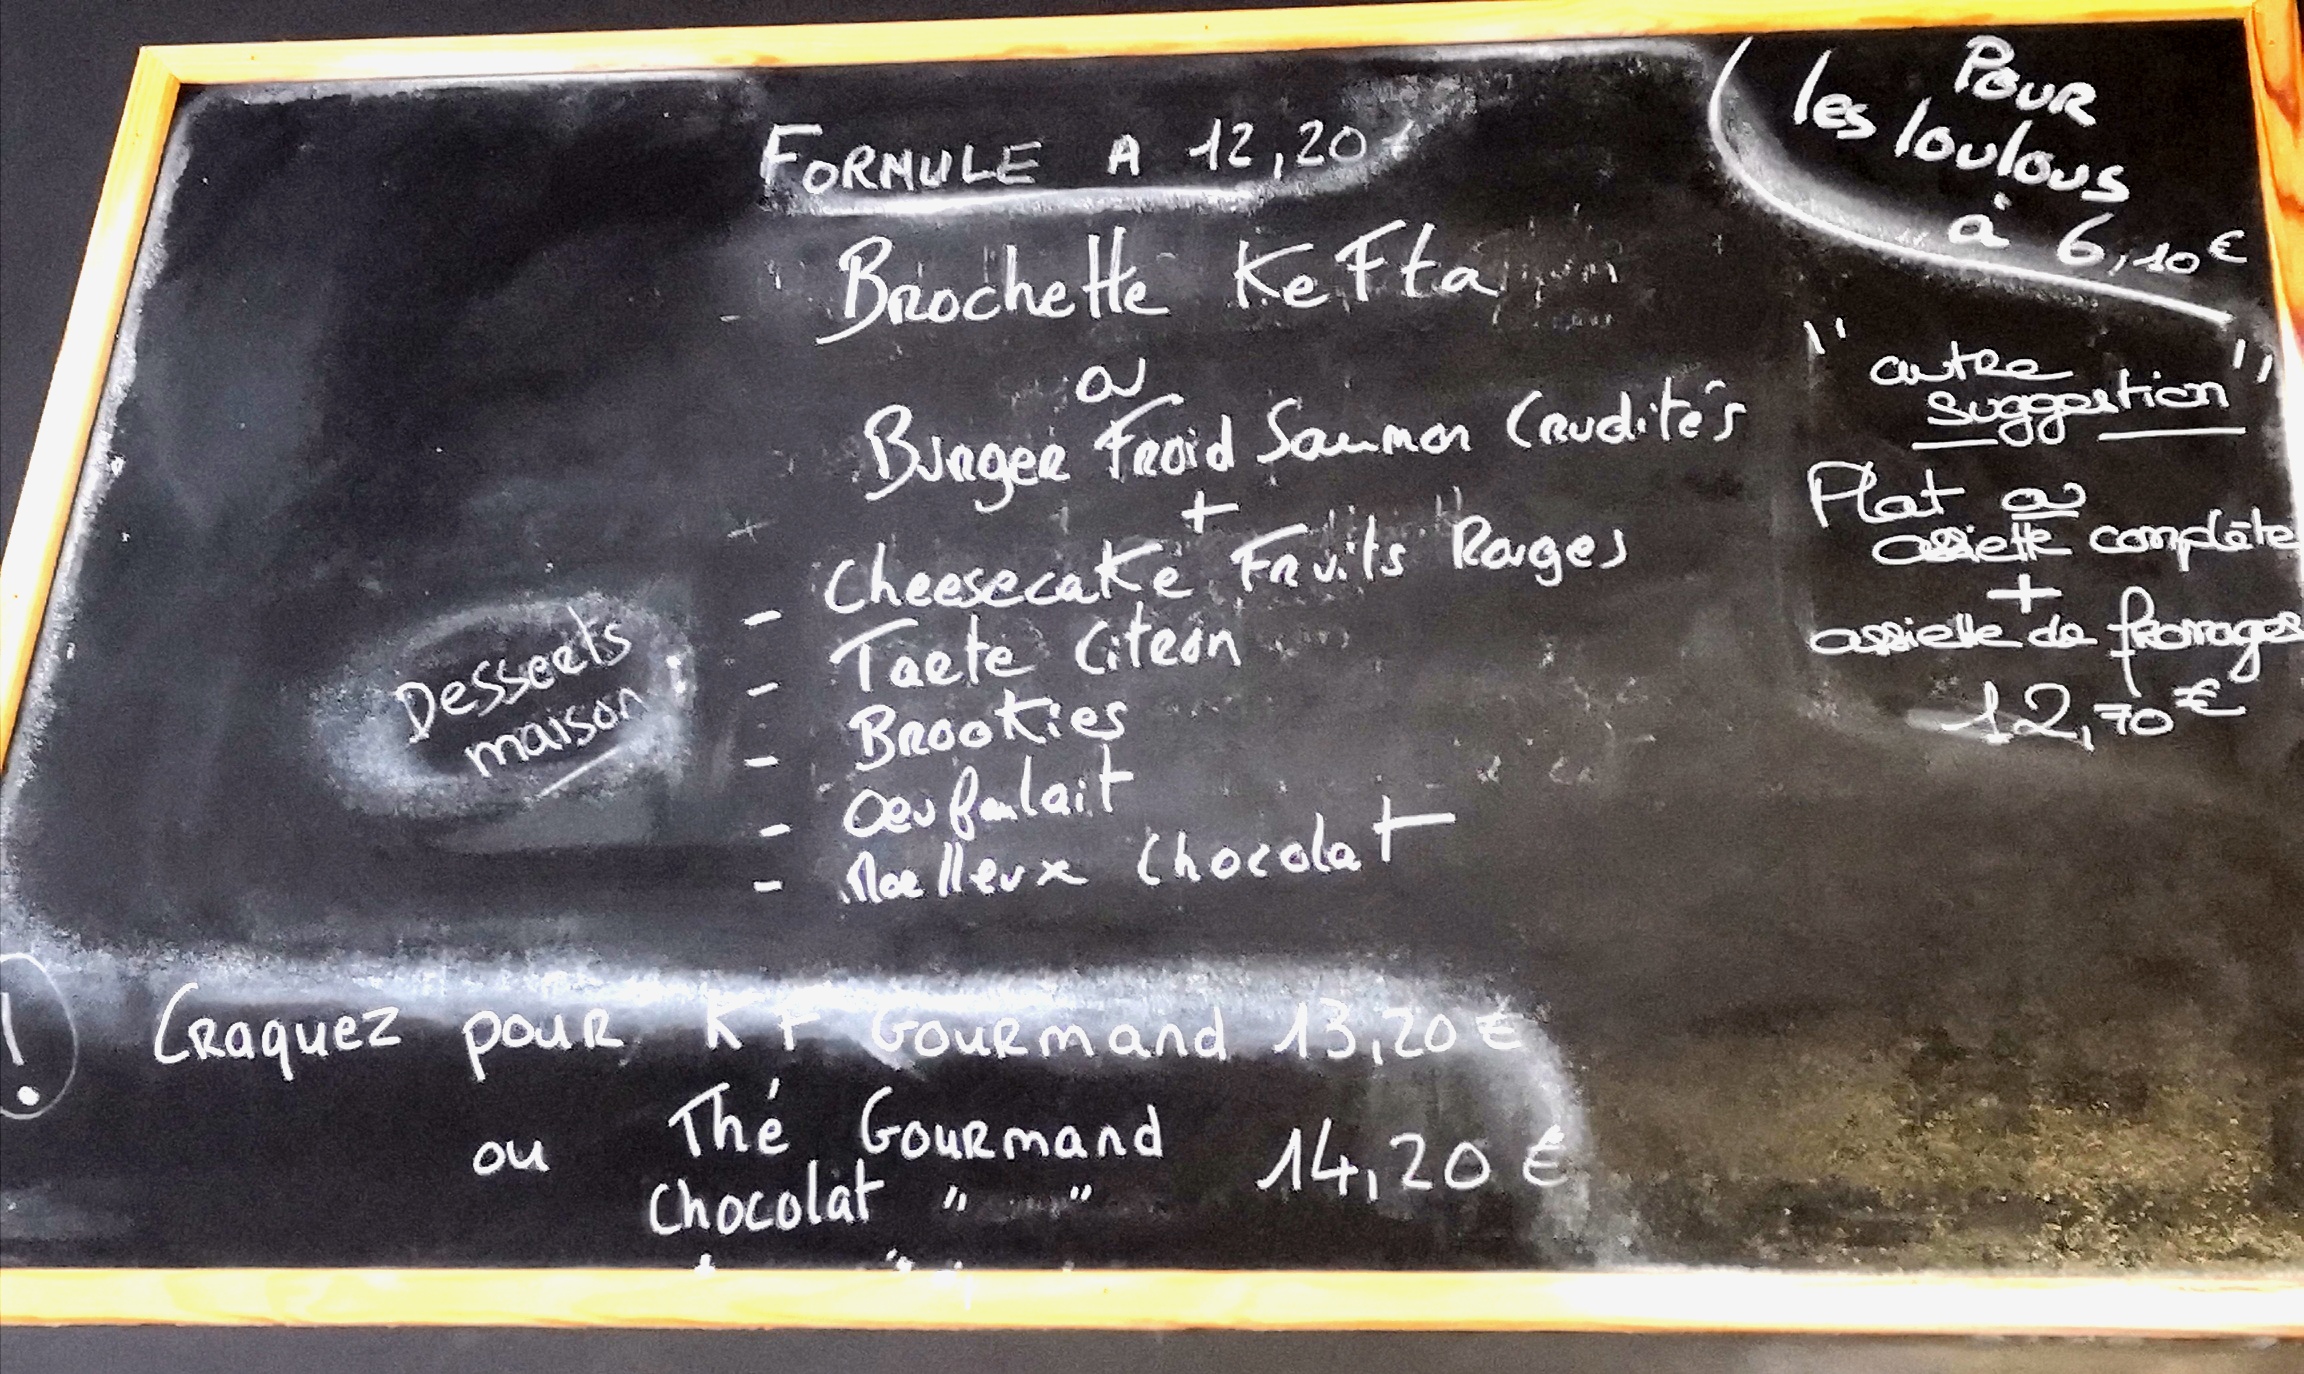 FORMULE A 12,20 €
Brochette Kefta
ou
Burger Froid Saumon Crudités
+
- Cheesecake Fruits Rouges
- Tarte Citron
- Brookies
- Oeufaulait
- Moelleux Chocolat
Desserts
maison
POUR
les loulous
à 6,10 €
"autre
suggestion"
Plat ou
assiette complète
+
assiette de fromages
12,70 €
! Craquez pour KF Gourmand 13,20 €
ou Thé Gourmand 14,20 €
Chocolat " "